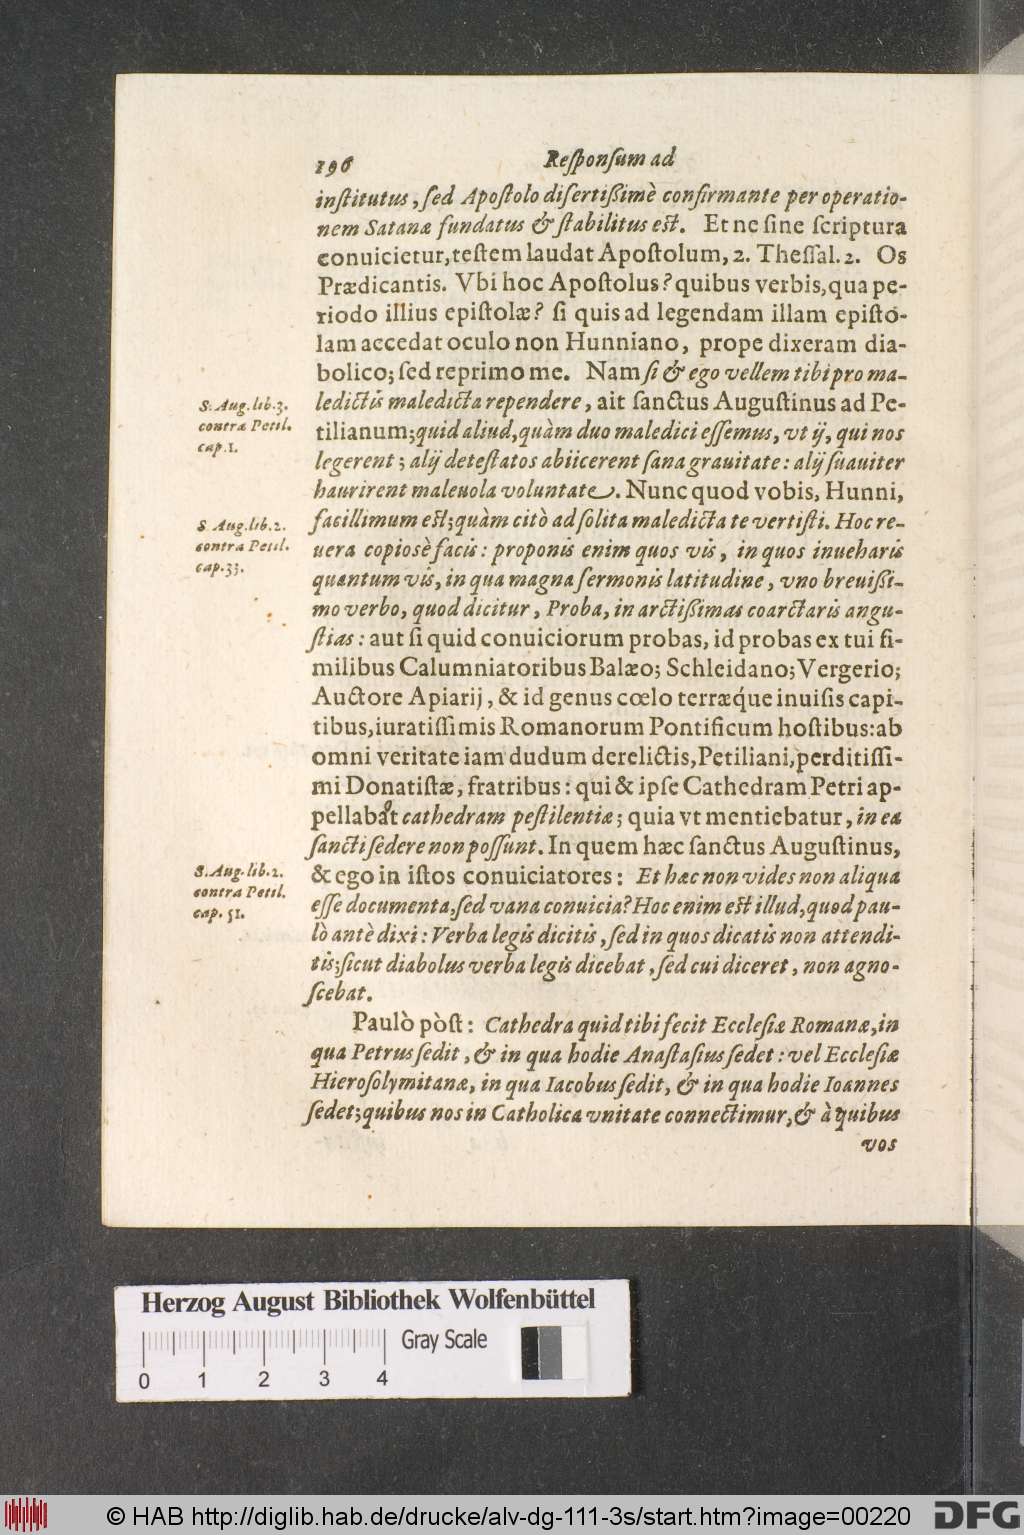 196 Reſponſum ad
inſtitutus, ſed Apoſtolo diſertißimè confirmante per operatio-
nem Satanæ fundatus & ſtabilitus eſt. Et ne ſine ſcriptura
conuicietur, teſtem laudat Apoſtolum, 2. Theſſal. 2. Os
Prædicantis. Vbi hoc Apoſtolus? quibus verbis, qua pe-
riodo illius epiſtolæ? ſi quis ad legendam illam epiſto-
lam accedat oculo non Hunniano, prope dixeram dia-
bolico; ſed reprimo me. Nam ſi & ego vellem tibi pro ma-
S. Aug. lib. 3.
contra Petil.
cap. 1.
ledictis maledicta rependere, ait ſanctus Auguſtinus ad Pe-
tilianum; quid aliud, quàm duo maledici eſſemus, vt ij, qui nos
legerent; alij deteſtatos abiicerent ſana grauitate: alij ſuauiter
haurirent maleuola voluntate. Nunc quod vobis, Hunni,
S. Aug. lib. 2.
contra Petil.
cap. 33.
facillimum eſt; quàm citò ad ſolita maledicta te vertiſti. Hoc re-
uera copiosè facis: proponis enim quos vis, in quos inueharis
quantum vis, in qua magna ſermonis latitudine, vno breuißi-
mo verbo, quod dicitur, Proba, in arctißimas coarctaris angu-
ſtias: aut ſi quid conuiciorum probas, id probas ex tui ſi-
milibus Calumniatoribus Balæo; Schleidano; Vergerio;
Auctore Apiarij, & id genus cœlo terræq́ue inuiſis capi-
tibus, iuratiſſimis Romanorum Pontificum hoſtibus: ab
omni veritate iam dudum derelictis, Petiliani, perditiſſi-
mi Donatiſtæ, fratribus: qui & ipſe Cathedram Petri ap-
pellabat cathedram peſtilentiæ; quia vt mentiebatur, in ea
ſancti ſedere non poſſunt. In quem hæc ſanctus Auguſtinus,
S. Aug. lib. 2.
contra Petil.
cap. 51.
& ego in iſtos conuiciatores: Et hæc non vides non aliqua
eſſe documenta, ſed vana conuicia? Hoc enim eſt illud, quod pau-
lò antè dixi: Verba legis dicitis, ſed in quos dicatis non attendi-
tis; ſicut diabolus verba legis dicebat, ſed cui diceret, non agno-
ſcebat.
Paulò pòſt: Cathedra quid tibi fecit Eccleſiæ Romanæ, in
qua Petrus ſedit, & in qua hodie Anaſtaſius ſedet: vel Eccleſiæ
Hieroſolymitanæ, in qua Iacobus ſedit, & in qua hodie Ioannes
ſedet; quibus nos in Catholica vnitate connectimur, & à quibus
vos
Herzog August Bibliothek Wolfenbüttel
Gray Scale
0 1 2 3 4
© HAB http://diglib.hab.de/drucke/alv-dg-111-3s/start.htm?image=00220
DFG